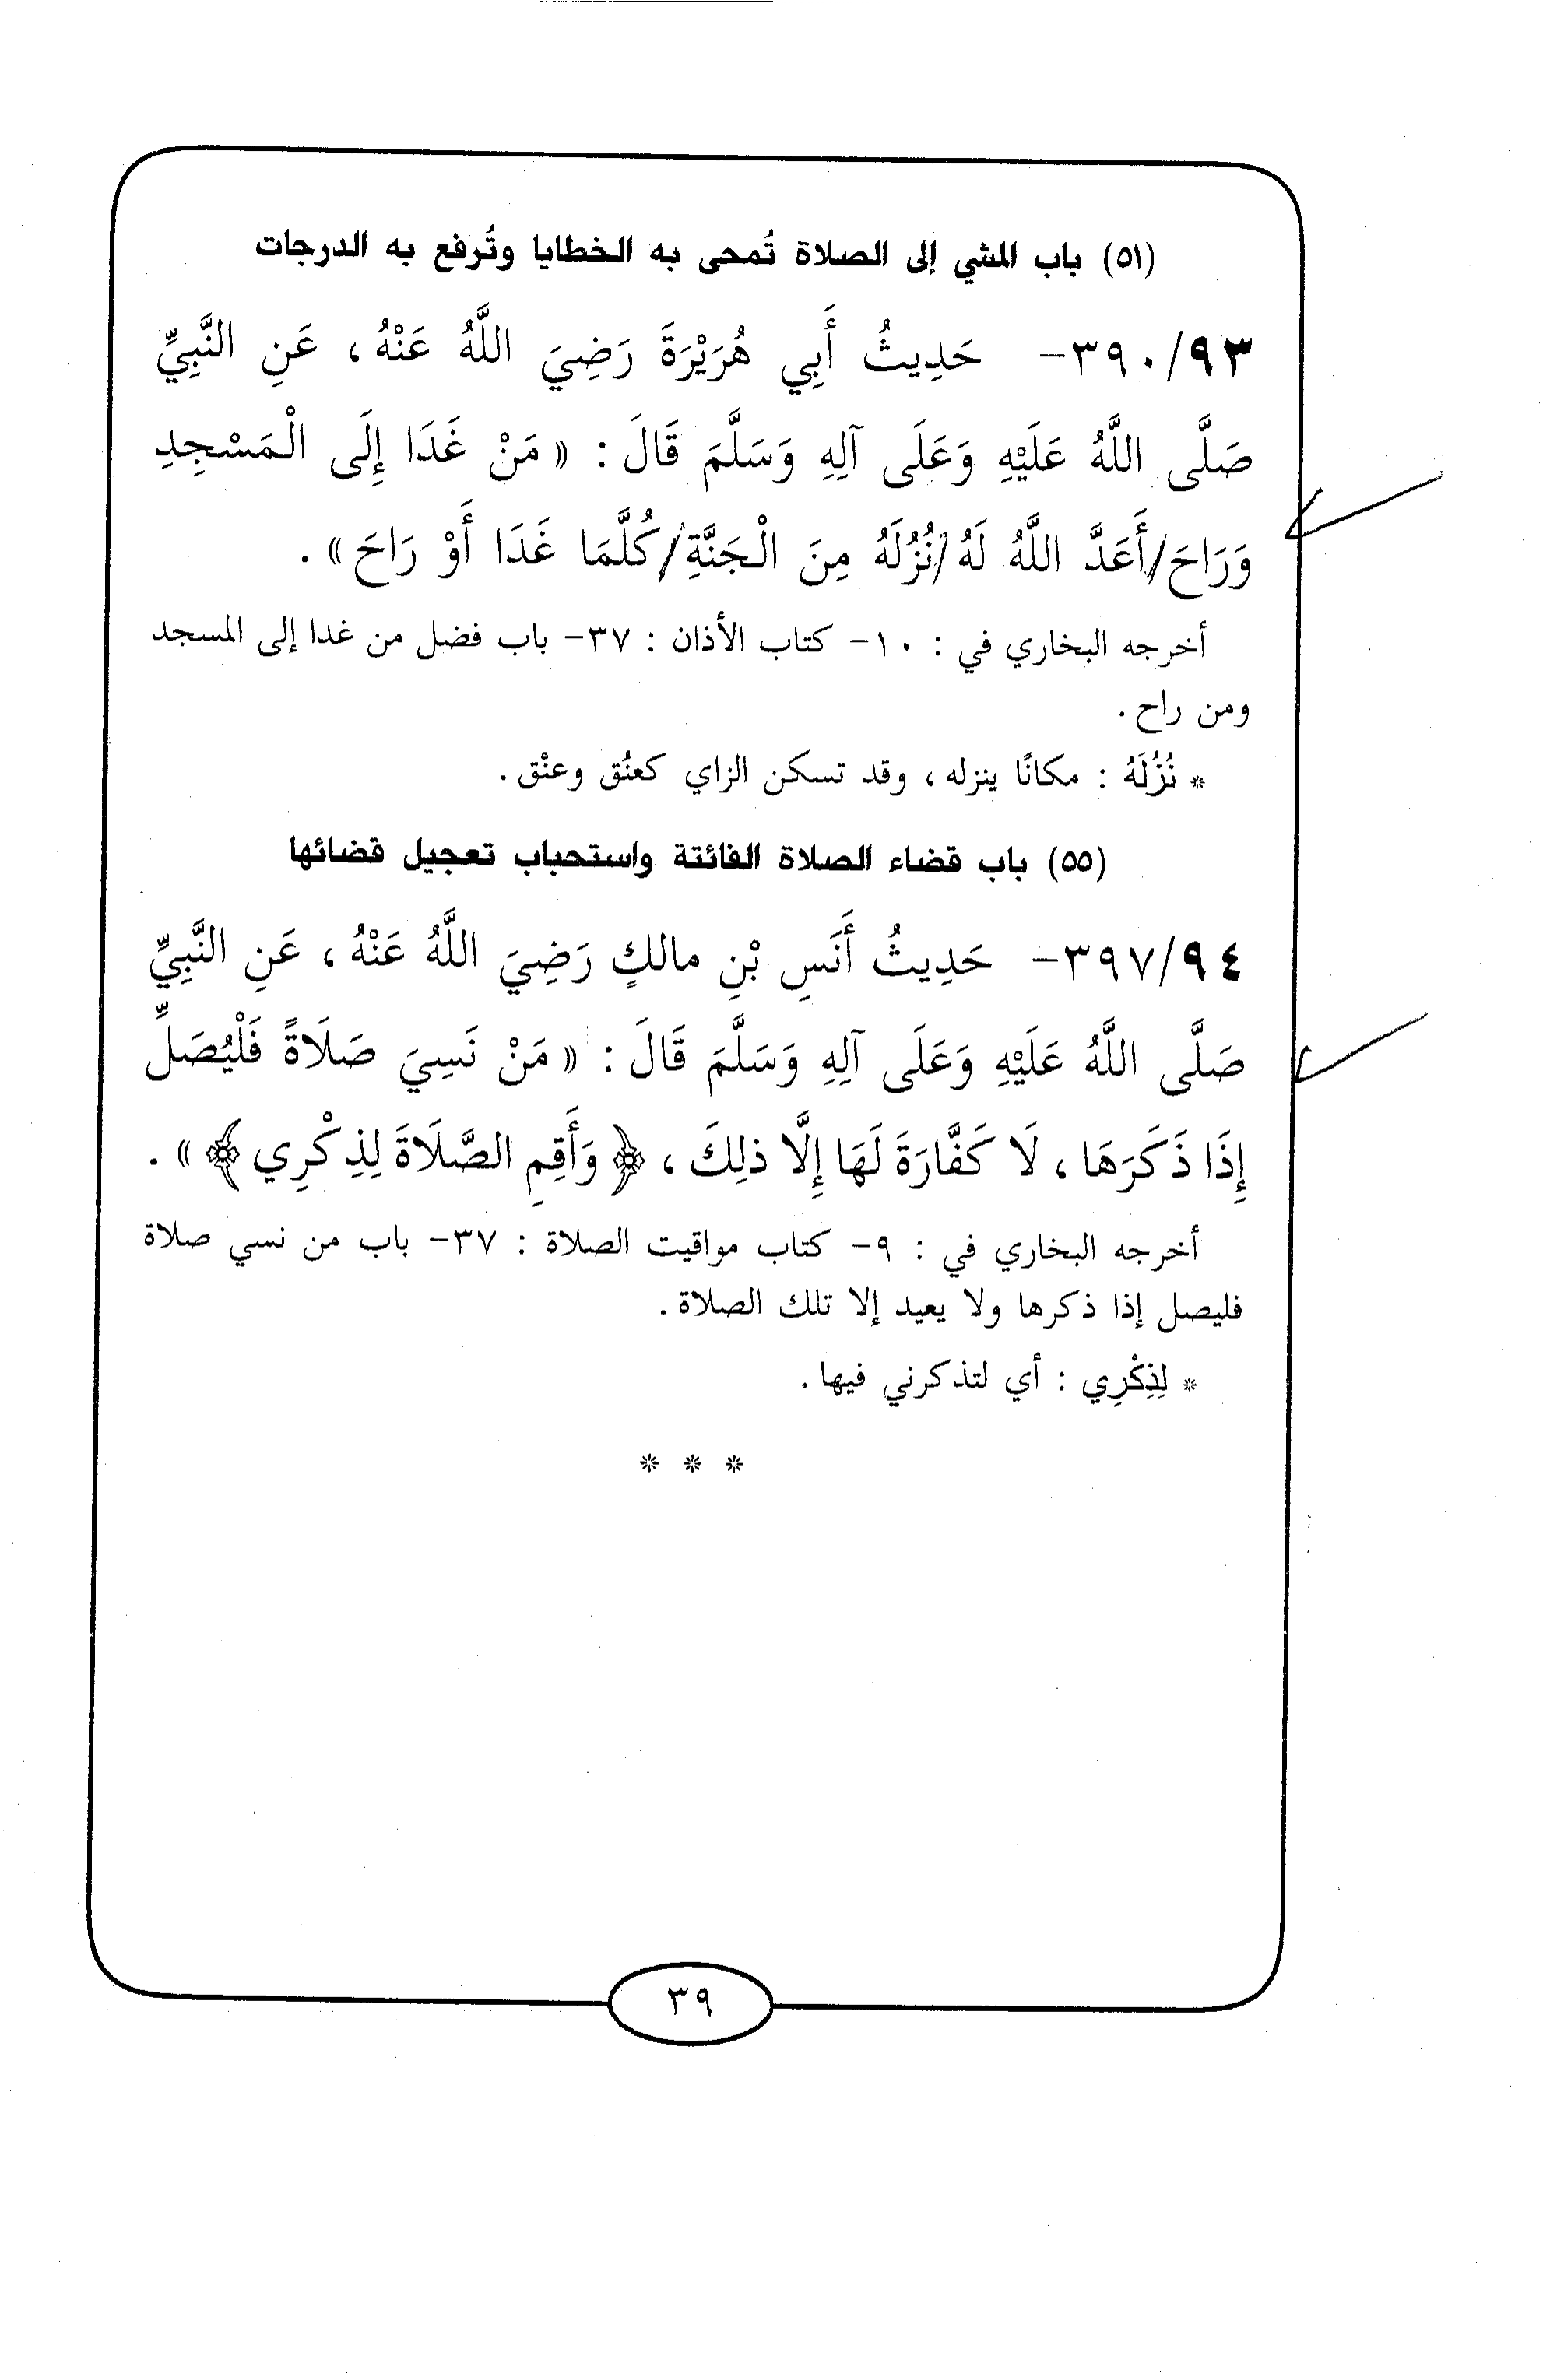 (٥١) باب المشي إلى الصلاة تُمحى به الخطايا وتُرفع به الدرجات
٣٩٠/٩٣- حَدِيثُ أَبِي هُرَيْرَةَ رَضِيَ اللَّهُ عَنْهُ، عَنِ النَّبِيِّ
صَلَّى اللَّهُ عَلَيْهِ وَعَلَى آلِهِ وَسَلَّمَ قَالَ : « مَنْ غَدَا إِلَى الْمَسْجِدِ
وَرَاحَ/أَعَدَّ اللَّهُ لَهُ/نُزُلَهُ مِنَ الْجَنَّةِ/كُلَّمَا غَدَا أَوْ رَاحَ » .
أخرجه البخاري في : ١٠- كتاب الأذان : ٣٧- باب فضل من غدا إلى المسجد
ومن راح .
* نُزُلَهُ : مكانًا ينزله ، وقد تسكن الزاي كعنُق وعنْق .
(٥٥) باب قضاء الصلاة الفائتة واستحباب تعجيل قضائها
٣٩٧/٩٤- حَدِيثُ أَنَسِ بْنِ مالكٍ رَضِيَ اللَّهُ عَنْهُ ، عَنِ النَّبِيِّ
صَلَّى اللَّهُ عَلَيْهِ وَعَلَى آلِهِ وَسَلَّمَ قَالَ : « مَنْ نَسِيَ صَلَاةً فَلْيُصَلِّ
إِذَا ذَكَرَهَا ، لَا كَفَّارَةَ لَهَا إِلَّا ذلِكَ ، ﴿ وَأَقِمِ الصَّلَاةَ لِذِكْرِي ﴾ » .
أخرجه البخاري في : ٩- كتاب مواقيت الصلاة : ٣٧- باب من نسي صلاة
فليصل إذا ذكرها ولا يعيد إلا تلك الصلاة .
* لِذِكْرِي : أي لتذكرني فيها .
* * *
٣٩